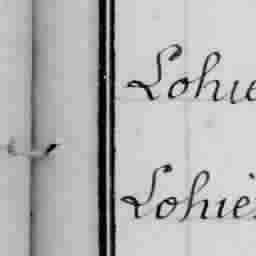 Lohie
Lohiè